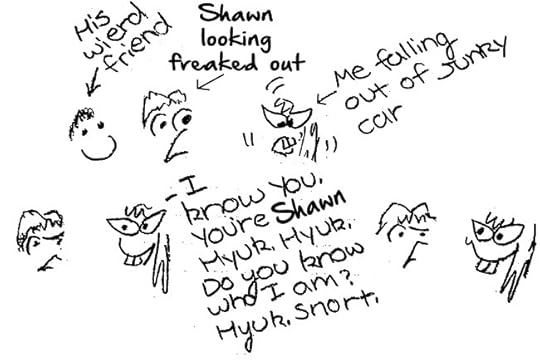 His
wierd
friend
Shawn
looking
freaked out
Me falling
out of Junky
car
- I
know you.
You're Shawn
Hyuk. Hyuk.
Do you know
who I am?
Hyuk. Snort.